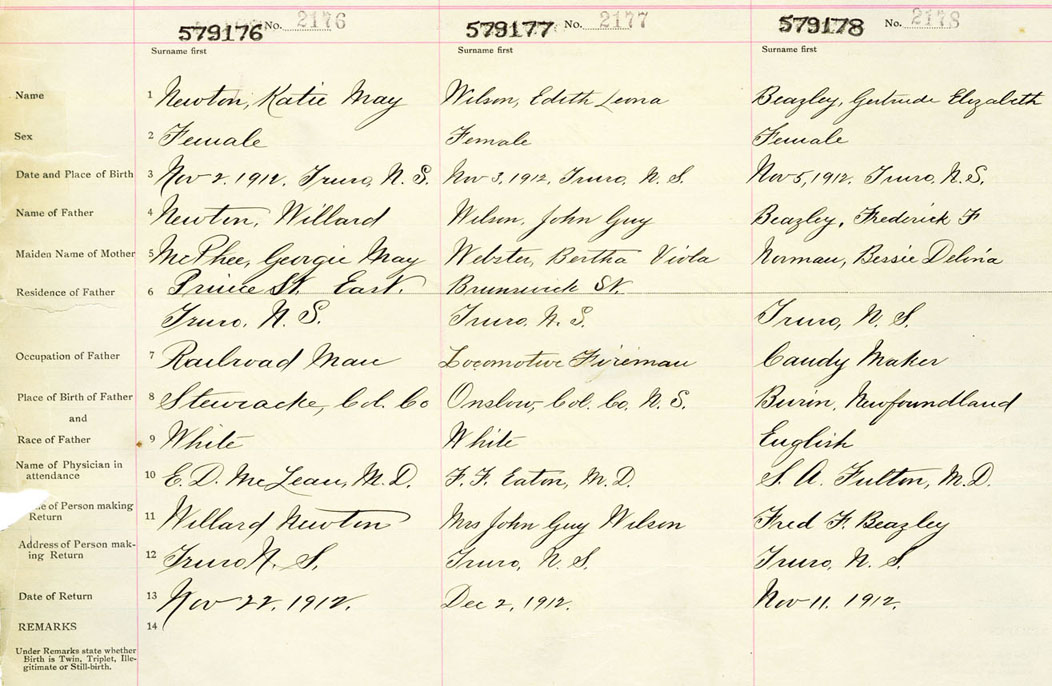 579176 No. 2176 579177 No. 2177 579178 No. 2178
Surname first Surname first Surname first
Name 1 Newton, Katie May Wilson, Edith Leona Beazley, Gertrude Elizabeth
Sex 2 Female Female Female
Date and Place of Birth 3 Nov 2. 1912. Truro, N. S. Nov 3, 1912, Truro, N. S. Nov 5, 1912. Truro, N. S.
Name of Father 4 Newton, Willard Wilson, John Guy Beazley, Frederick F
Maiden Name of Mother 5 McPhee, Georgie May Webster, Bertha Viola Norman, Bessie Delina
Residence of Father 6 Prince St. East. Brunswick St.
Truro, N. S. Truro, N. S. Truro, N. S.
Occupation of Father 7 Railroad Man Locomotive Fireman Candy Maker
Place of Birth of Father 8 Stewiacke, Col. Co Onslow, Col. Co. N. S. Burin, Newfoundland
and
Race of Father 9 White White English
Name of Physician in
attendance 10 E. D. McLean, M. D. F. F. Eaton, M. D. S. A. Fulton, M. D.
of Person making
Return 11 Willard Newton Mrs John Guy Wilson Fred F. Beazley
Address of Person mak-
ing Return 12 Truro N. S. Truro, N. S. Truro, N. S.
Date of Return 13 Nov 22. 1912. Dec 2, 1912. Nov 11. 1912.
REMARKS 14
Under Remarks state whether
Birth is Twin, Triplet, Ille-
gitimate or Still-birth.